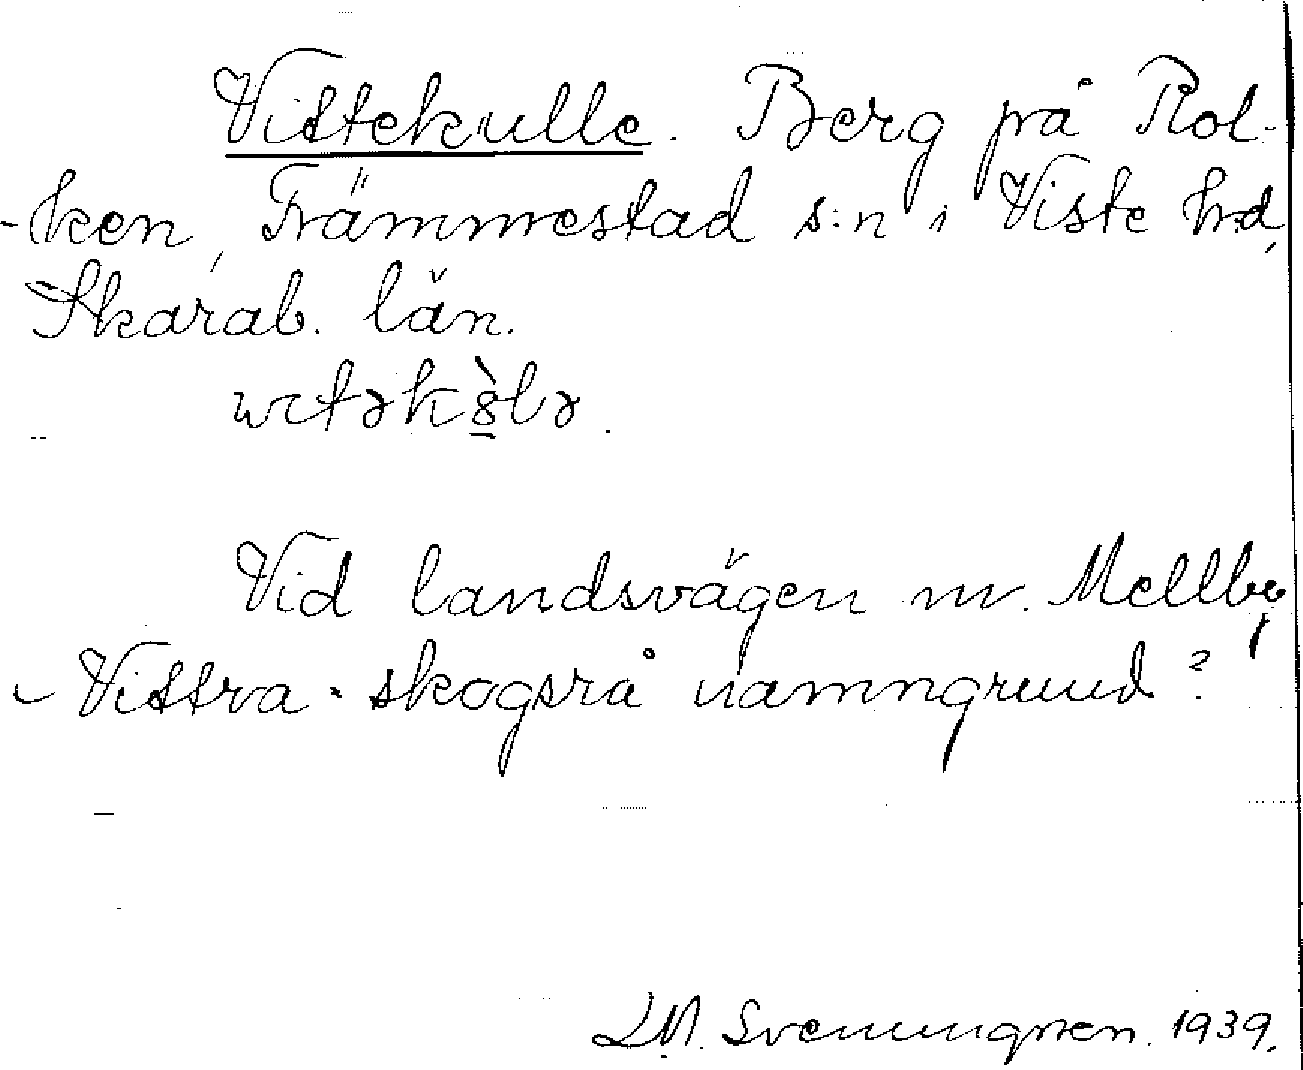 Vittekulle. Berg på Rol-
-ken, Främmestad s:n i Viste hd,
Skarab. län.
Vid landsvägen nv. Mellby
Vittra = skogsrå namngrund?
L.M. Svenungsson. 1939.